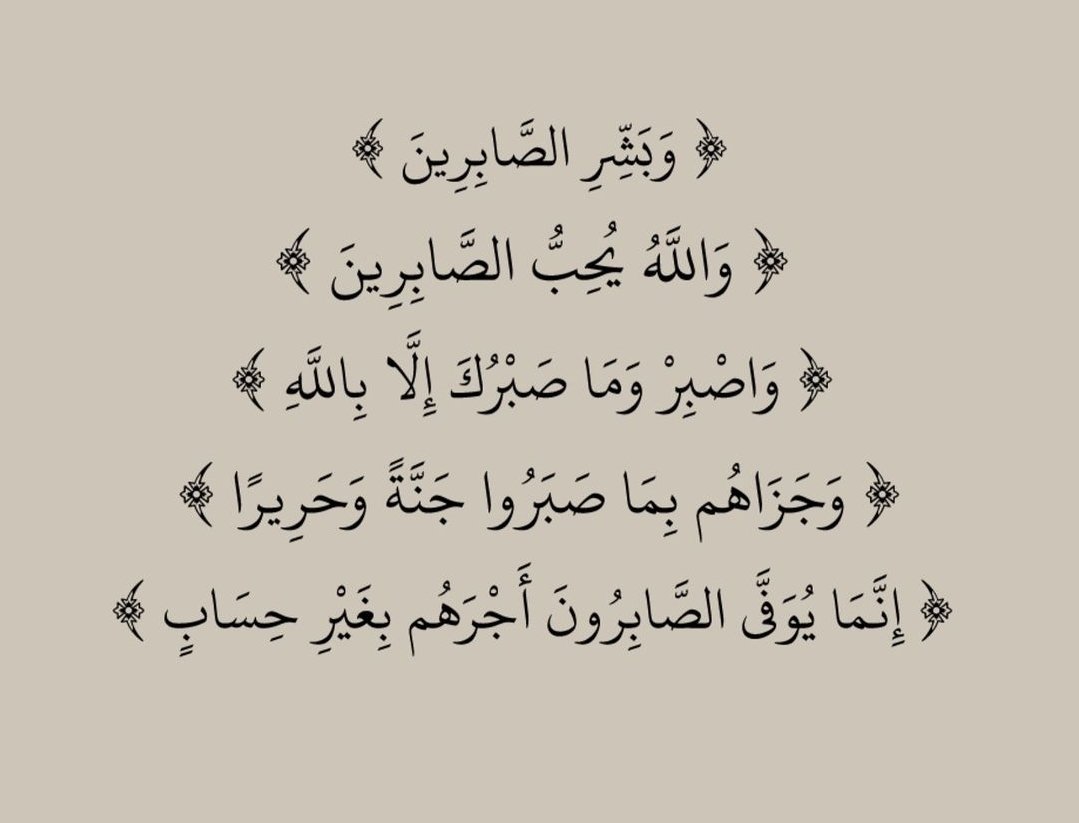 ﴿ وَبَشِّرِ الصَّابِرِينَ ﴾
﴿ وَاللَّهُ يُحِبُّ الصَّابِرِينَ ﴾
﴿ وَاصْبِرْ وَمَا صَبْرُكَ إِلَّا بِاللَّهِ ﴾
﴿ وَجَزَاهُم بِمَا صَبَرُوا جَنَّةً وَحَرِيرًا ﴾
﴿ إِنَّمَا يُوَفَّى الصَّابِرُونَ أَجْرَهُم بِغَيْرِ حِسَابٍ ﴾